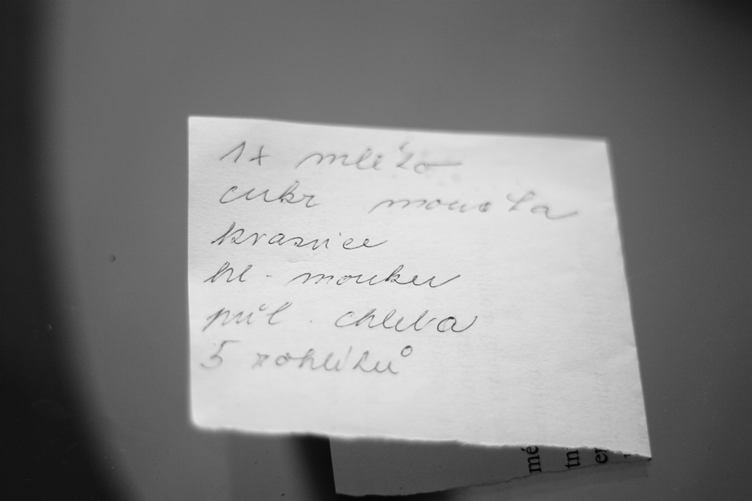 1x mléko
cukr moučka
krasnice
hl. mouku
půl chleba
5 rohlíků
mé
tn